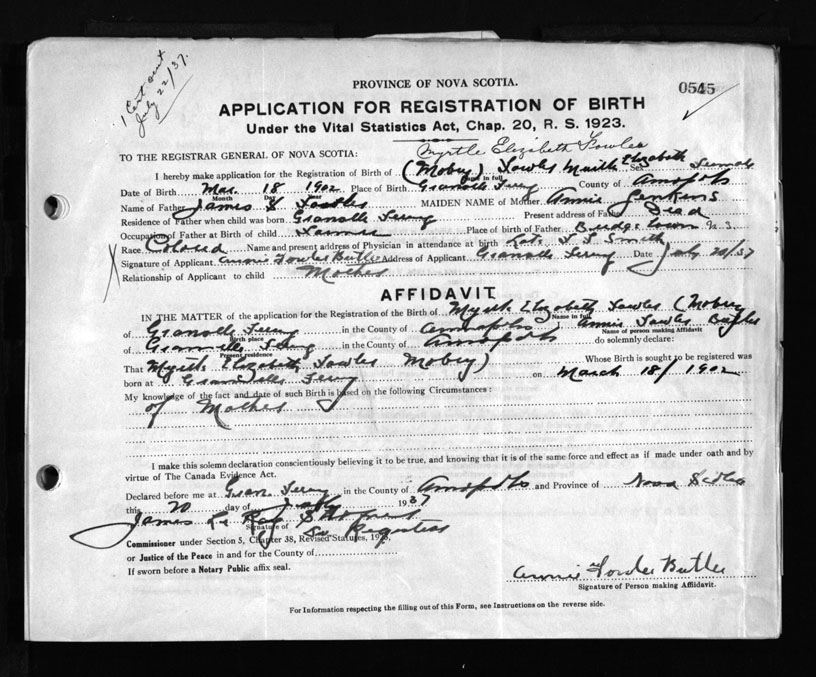 1 Cert sent
July 22/37.
PROVINCE OF NOVA SCOTIA.
0545
APPLICATION FOR REGISTRATION OF BIRTH
Under the Vital Statistics Act, Chap. 20, R. S. 1923.
Myrtle Elizabeth Fowler
TO THE REGISTRAR GENERAL OF NOVA SCOTIA:
I hereby make application for the Registration of Birth of (Mobey) Fowles Elizabeth Sex Female
Name in full
Date of Birth Mar. 18 1902 Place of Birth Granville Ferry County of Annapolis
Month Day Year
Name of Father James Fowles MAIDEN NAME of Mother Annie Jenkins
Residence of Father when child was born Granville Ferry Present address of Father Dead
Occupation of Father at Birth of child Farmer Place of birth of Father Bridgetown N.S.
Race Colored Name and present address of Physician in attendance at birth Smith
Signature of Applicant Annie Fowles Butler Address of Applicant Granville Ferry Date July 20/37
Relationship of Applicant to child Mother
AFFIDAVIT
IN THE MATTER of the application for the Registration of the Birth of Myrtle Elizabeth Fowles (Mobey
Name in full
of Granville Ferry in the County of Annapolis Annie Fowles Butler
Birth place Name of person making Affidavit
of Granville Ferry in the County of Annapolis do solemnly declare:
Present residence
That Myrtle Elizabeth Fowles Mobey) Whose Birth is sought to be registered was
born at Granville Ferry on March 18/1902
My knowledge of the fact and date of such Birth is based on the following Circumstances:
of Mother
I make this solemn declaration conscientiously believing it to be true, and knowing that it is of the same force and effect as if made under oath and by
virtue of The Canada Evidence Act.
Declared before me at Gran. Ferry in the County of Annapolis and Province of Nova Scotia
this 20 day of July 1937
James
Signature of
Registrar
Commissioner under Section 5, Chapter 38, Revised Statutes, 1923,
or Justice of the Peace in and for the County of
If sworn before a Notary Public affix seal.
Annie Fowler Butler
Signature of Person making Affidavit.
For Information respecting the filling out of this Form, see Instructions on the reverse side.